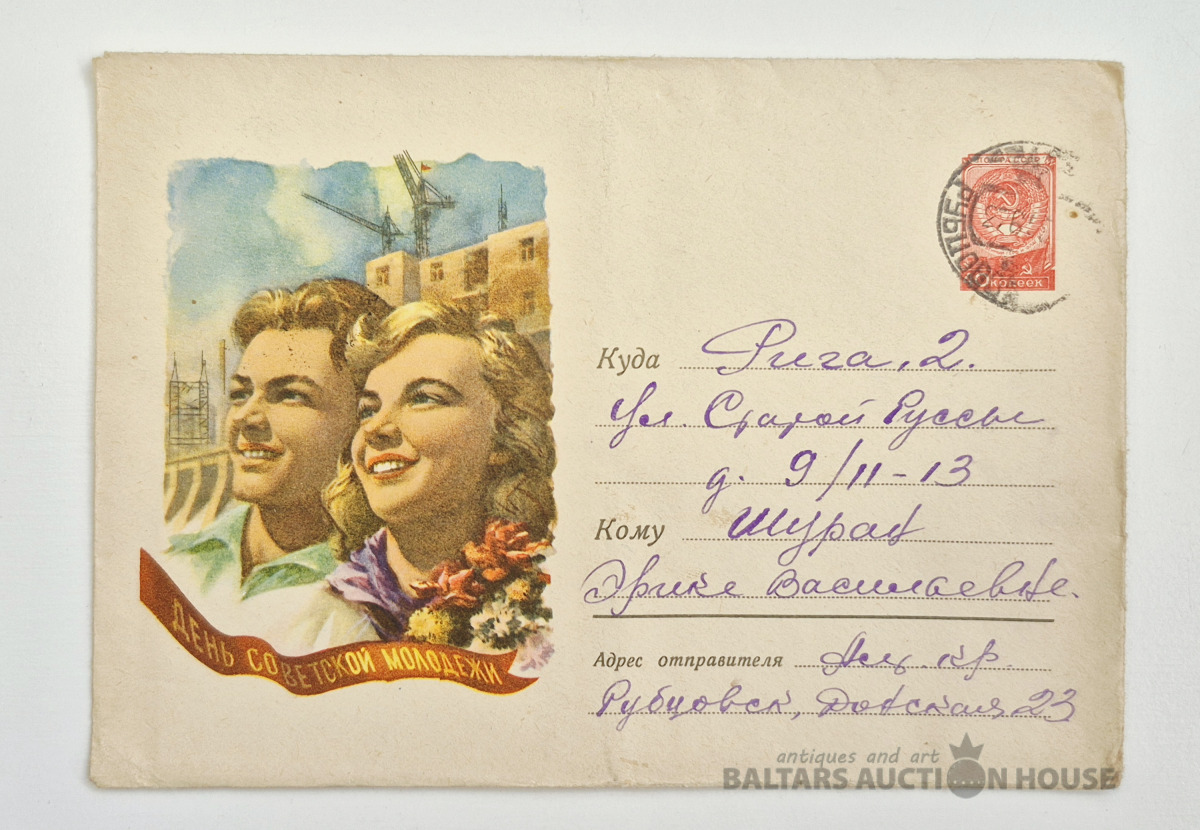 ДЕНЬ СОВЕТСКОЙ МОЛОДЕЖИ
ПОЧТА СССР
копеек
Куда Рига, 2.
Ул. Старой Руссы
д. 9/11-13
Кому Шурац
Эрике Васильевне.
Адрес отправителя Алт. кр.
Рубцовск, 23
antiques and art
BALTARS AUCTION HOUSE